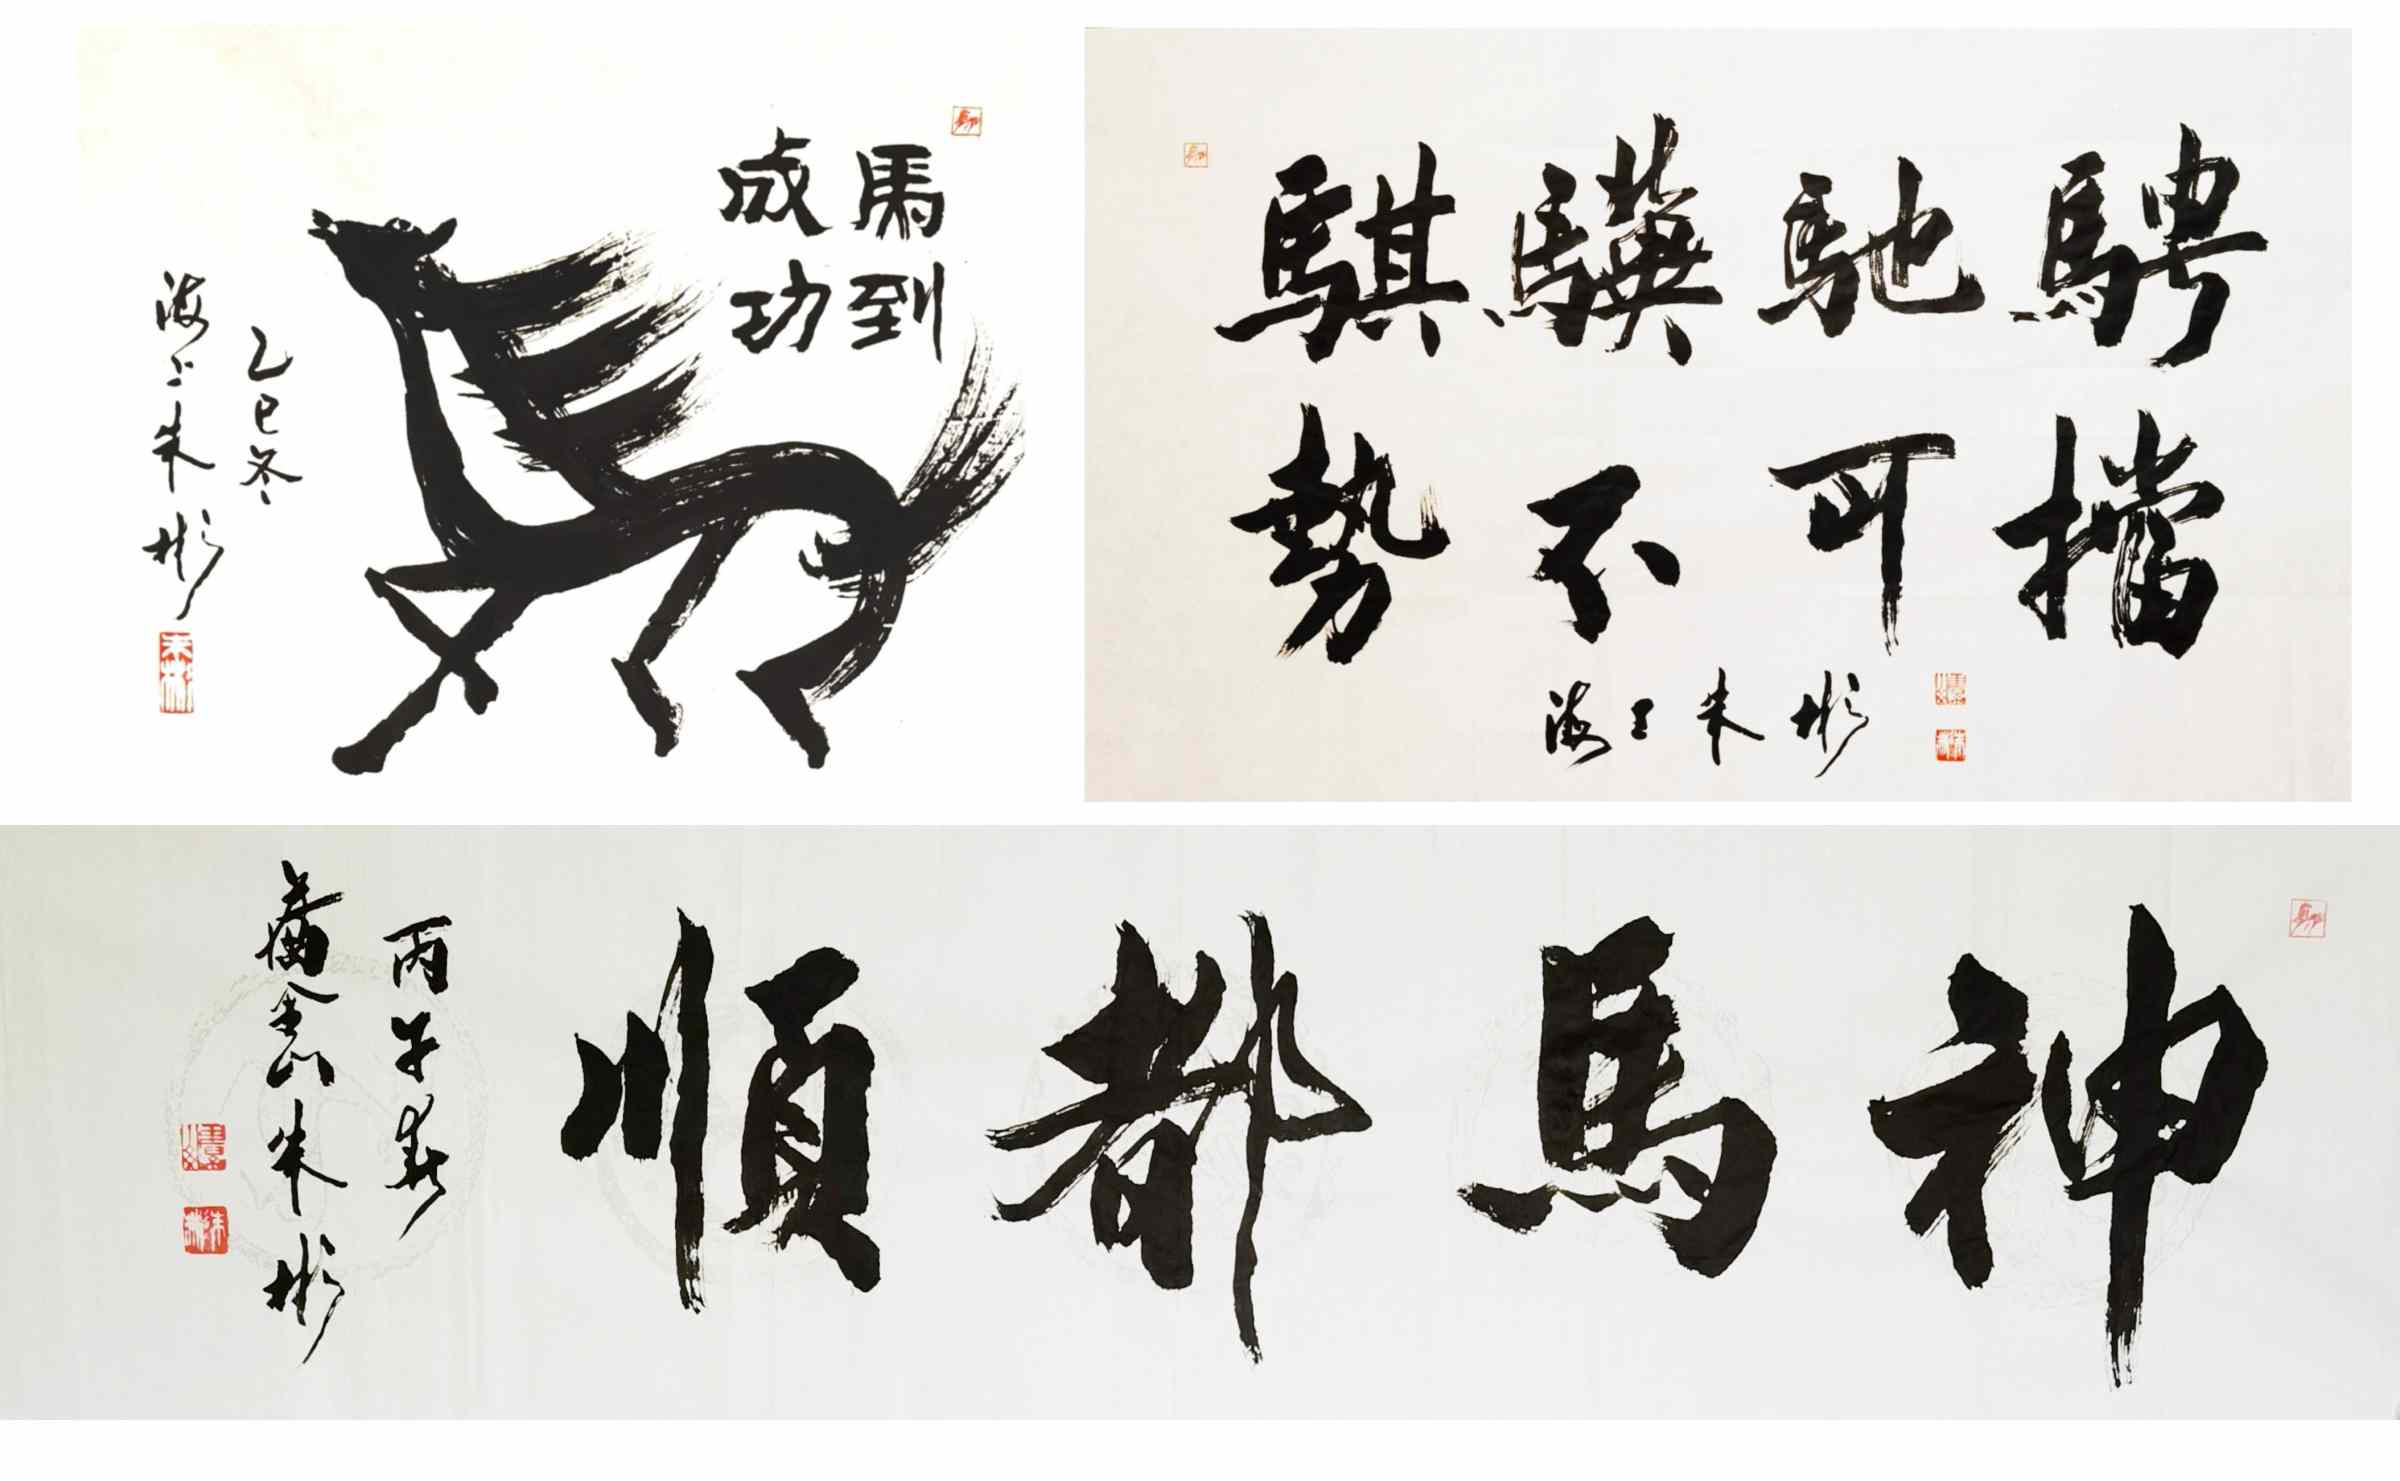 馬到
成功
乙巳冬
海上朱彬
朱彬
騏驥馳騁
勢不可擋
海上朱彬
神馬都順
丙午春
朱彬